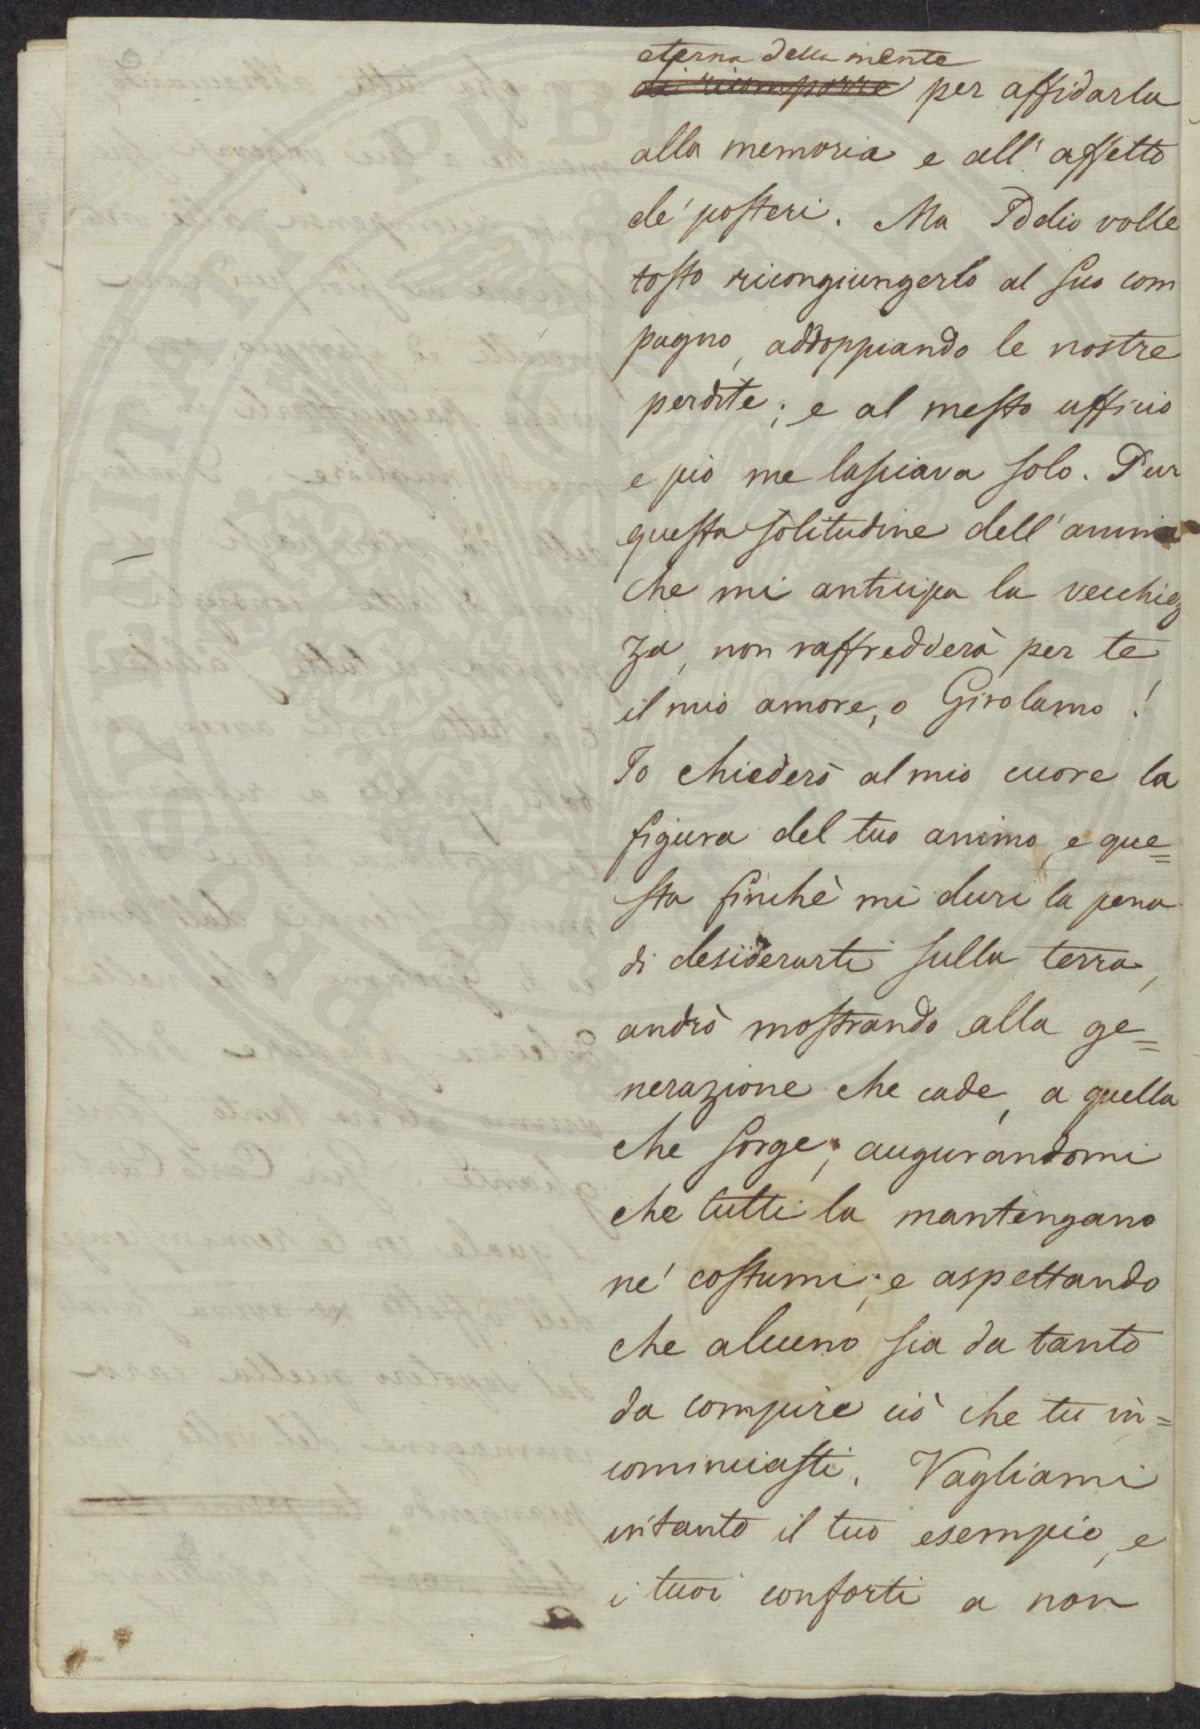 eterna della mente
di ricomporre per affidarla
alla memoria e all' affetto
de' posteri. Ma Iddio volle
tosto ricongiungerlo al suo com
pagno, addoppiando le nostre
perdite; e al mesto ufficio
e pio me lasciava solo. Pur
questa solitudine dell' anima
che mi anticipa la vecchiez
za, non raffredderà per te
il mio amore, o Girolamo!
Io chiederò al mio cuore la
figura del tuo animo, e que=
sta finchè mi duri la pena
di desiderarti sulla terra,
andrò mostrando alla ge=
nerazione che cade, a quella
che sorge; augurandomi
che tutti la mantengano
ne' costumi; e aspettando
che alcuno sia da tanto
da compire ciò che tu in=
cominciasti. Vagliami
intanto il tuo esempio, e
i tuoi conforti a non